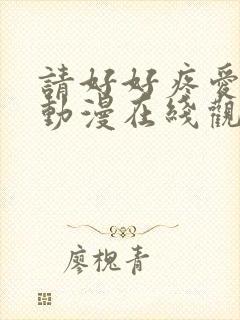 請好好疼愛
動漫在綫觀
廖槐青